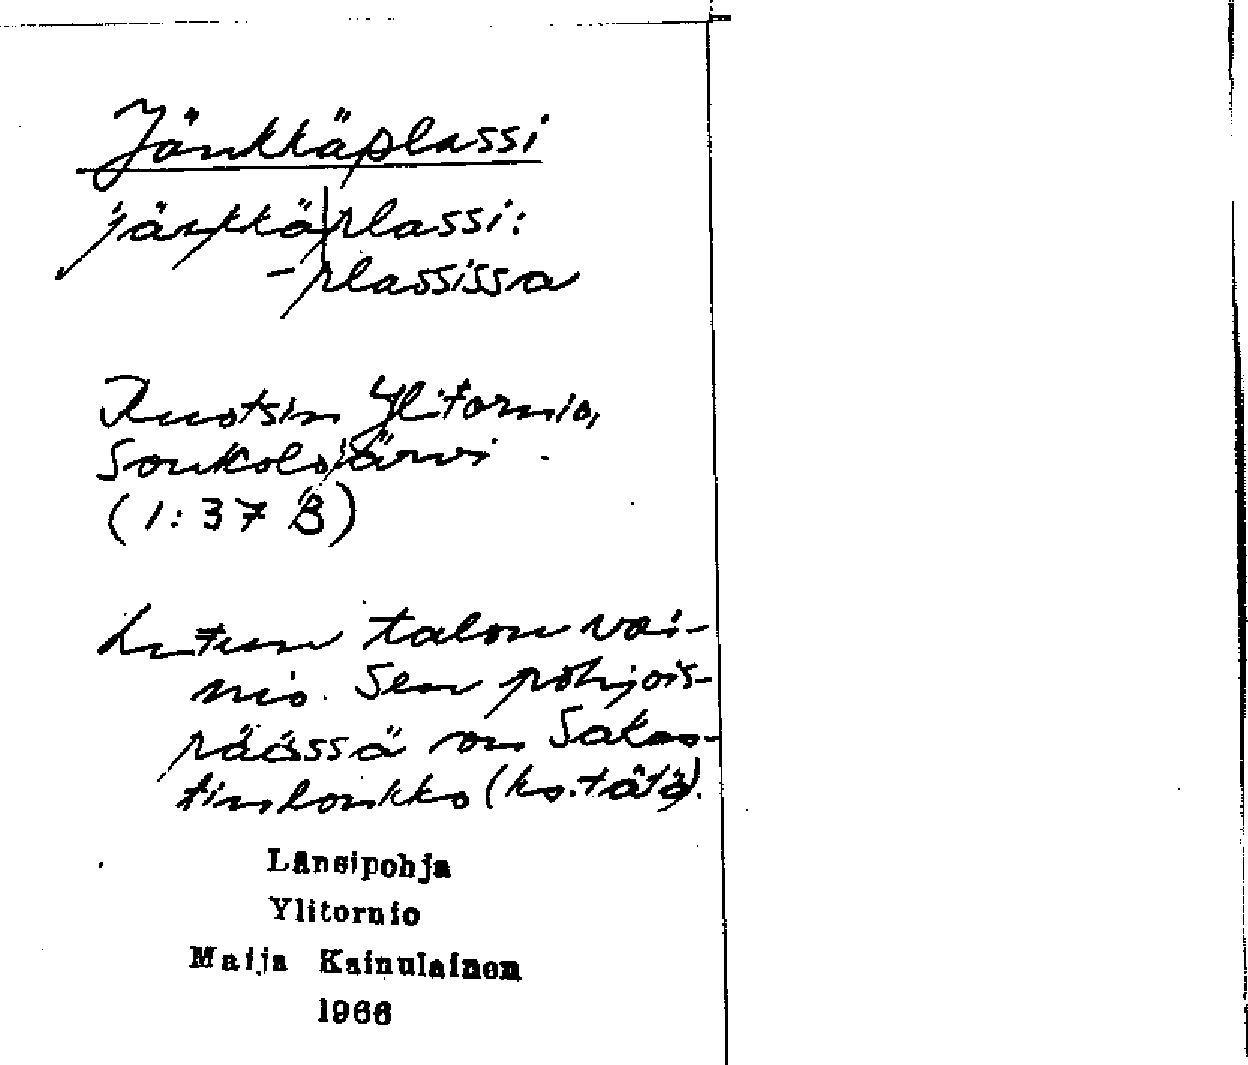 Jänkkäplassi
jänkkä|plassi:
-plassissa
Ruotsin Ylitornio,
Soukolojärvi.
(1:37 B)
talon vai-
nio. Sen pohjois-
päässä on Sakas-
tinlonkko (ks. tätä).
Länsipohja
Ylitornio
Maija Kainulainen
1966